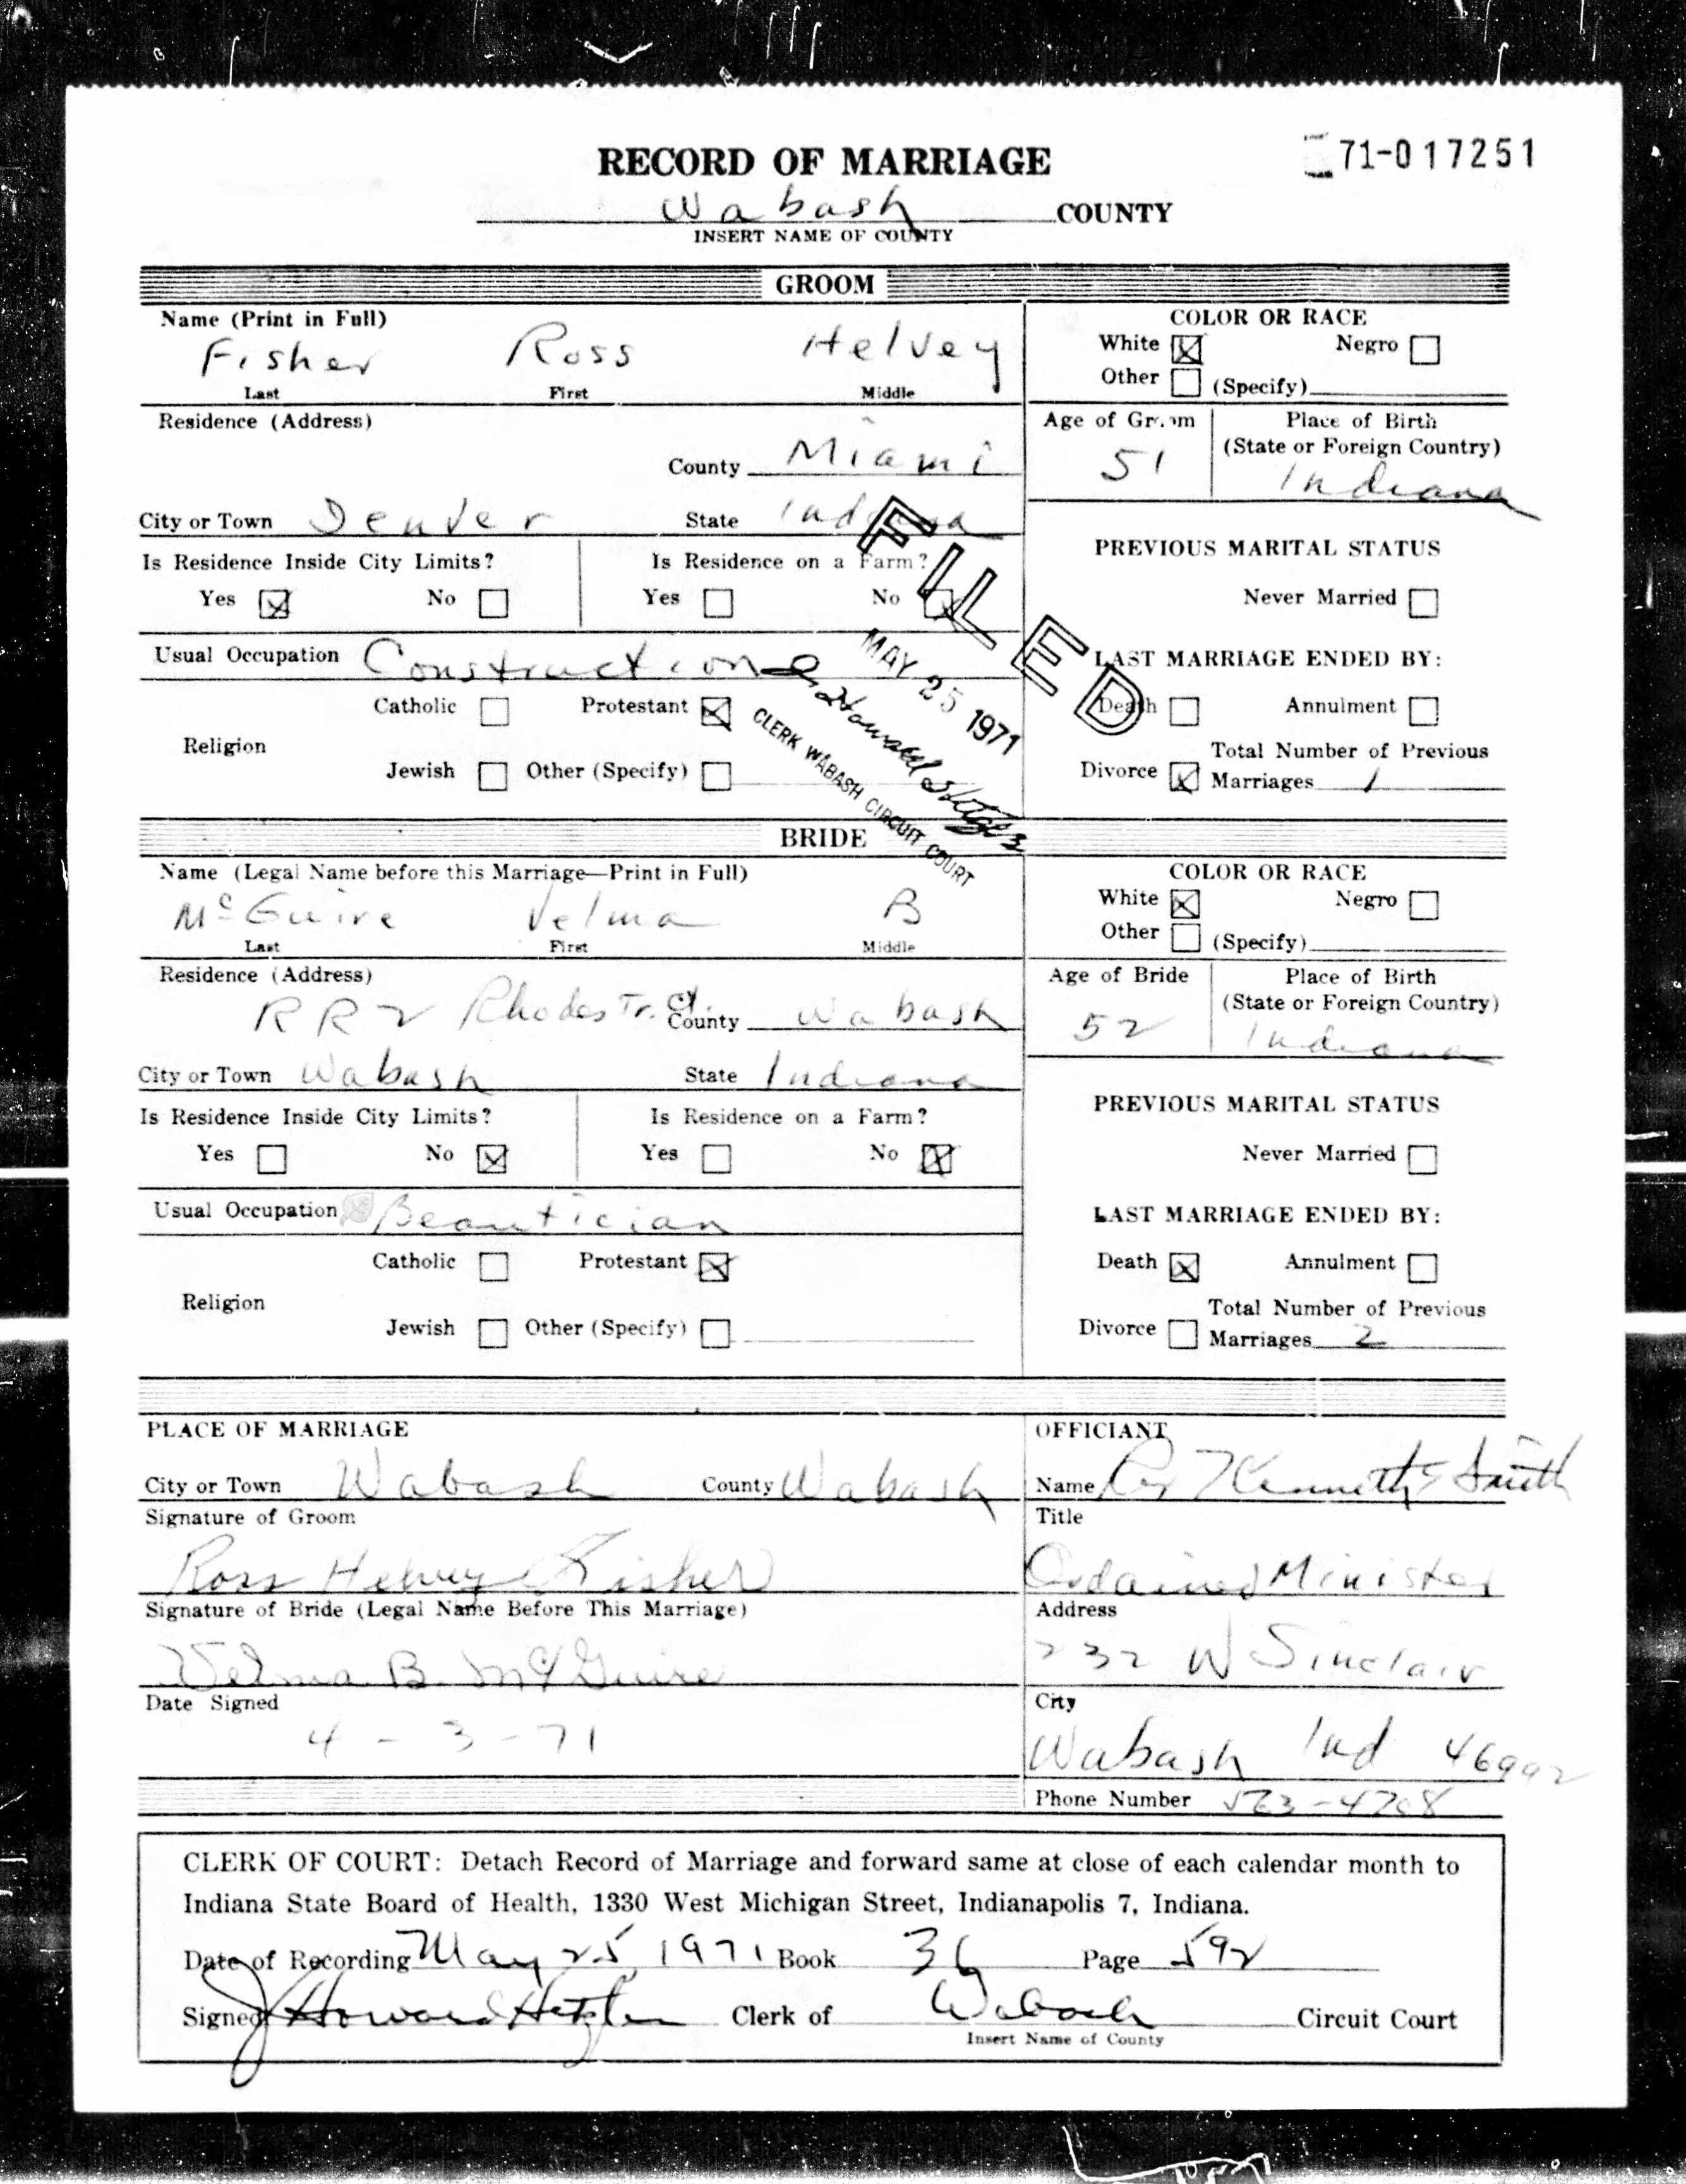 RECORD OF MARRIAGE
71-017251
Wabash COUNTY
INSERT NAME OF COUNTY
GROOM
Name (Print in Full)
Fisher Ross Helvey
Last First Middle
COLOR OR RACE
White Negro
Other (Specify)
Residence (Address)
County Miami
City or Town Denver State Indiana
Age of Groom
51
Place of Birth
(State or Foreign Country)
Indiana
Is Residence Inside City Limits?
Yes No
Is Residence on a Farm?
Yes No
PREVIOUS MARITAL STATUS
Never Married
Usual Occupation Construction
LAST MARRIAGE ENDED BY:
Death Annulment
Divorce
Total Number of Previous
Marriages 1
Catholic Protestant
Religion
Jewish Other (Specify)
FILED
MAY 25 1971
CLERK WABASH CIRCUIT COURT
BRIDE
Name (Legal Name before this Marriage—Print in Full)
McGuire Velma B
Last First Middle
COLOR OR RACE
White Negro
Other (Specify)
Residence (Address)
RR 2 Rhodes Tr. Ct. County Wabash
City or Town Wabash State Indiana
Age of Bride
52
Place of Birth
(State or Foreign Country)
Indiana
Is Residence Inside City Limits?
Yes No
Is Residence on a Farm?
Yes No
PREVIOUS MARITAL STATUS
Never Married
Usual Occupation Beautician
LAST MARRIAGE ENDED BY:
Death Annulment
Divorce
Total Number of Previous
Marriages 2
Catholic Protestant
Religion
Jewish Other (Specify)
PLACE OF MARRIAGE
City or Town Wabash County Wabash
Signature of Groom
Ross Helvey Fisher
Signature of Bride (Legal Name Before This Marriage)
Velma B. McGuire
Date Signed
4-3-71
OFFICIANT
Name Kenneth Smith
Title
Ordained Minister
Address
232 W Sinclair
City
Wabash Ind 46992
Phone Number
CLERK OF COURT: Detach Record of Marriage and forward same at close of each calendar month to
Indiana State Board of Health, 1330 West Michigan Street, Indianapolis 7, Indiana.
Date of Recording May 25, 1971 Book 36 Page 592
Signed J Howard Hetzler Clerk of Wabash Circuit Court
Insert Name of County